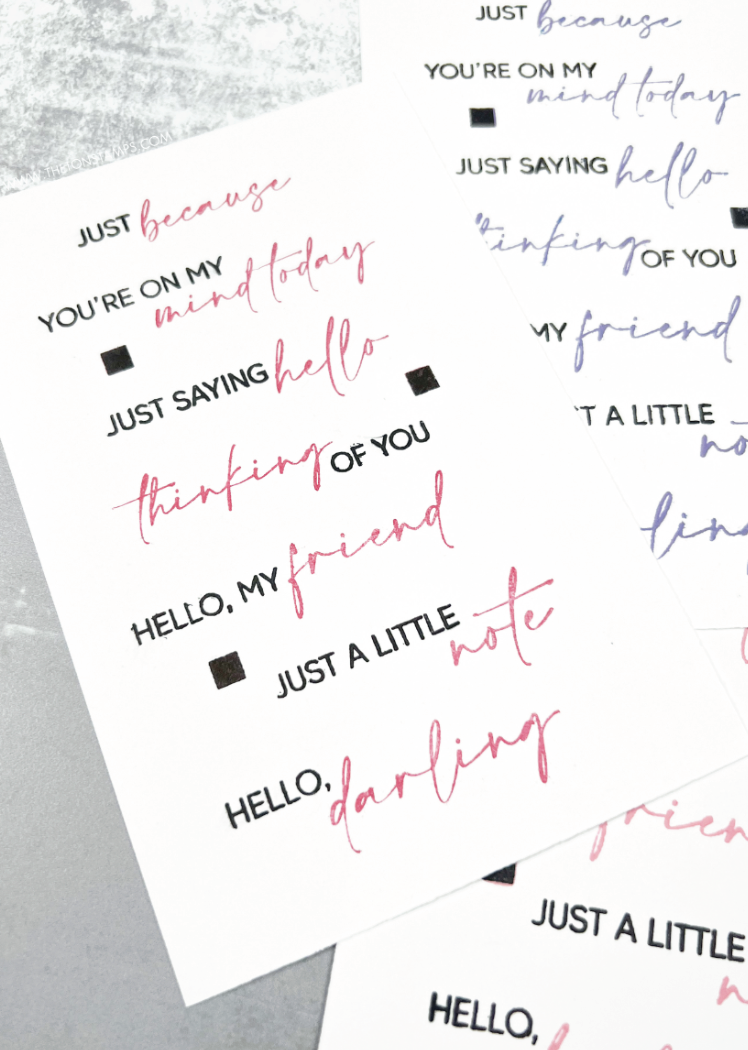 JUST because
YOU'RE ON MY
mind today
JUST SAYING hello
thinking OF YOU
HELLO, MY friend
JUST A LITTLE
note
HELLO, darling
JUST because
YOU'RE ON MY
mind today
JUST SAYING hello
thinking OF YOU
MY friend
T A LITTLE
no
lin
frien
JUST A LITTLE
n
HELLO,